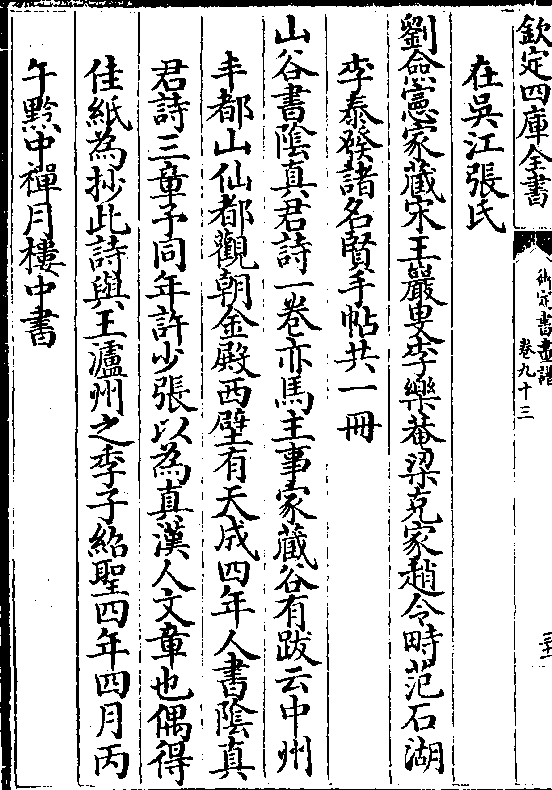 欽定四庫全書
御定書畫譜
卷九十三
三十
在吳江張氏
劉僉憲家藏宋王嚴叟李樂菴梁克家趙令畤范石湖
李泰發諸名賢手帖共一冊
山谷書隂真君詩一卷亦馬主事家藏谷有跋云中州
丰都山仙都觀朝金殿西壁有天成四年人書隂真
君詩三章予同年許少張以為真漢人文章也偶得
佳紙為抄此詩與王瀘州之李子紹聖四年四月丙
午黔中禪月樓中書